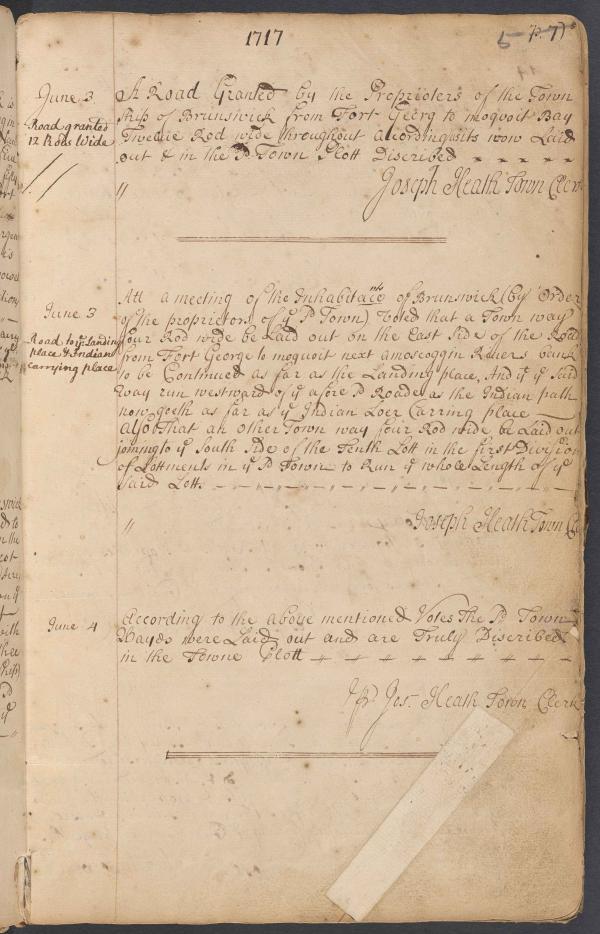 1717
5 p. 7)
June 3
Road granted
12 Rods Wide
A Road Granted by the Proprieters of the Town
Ship of Brunswick from Fort Georg to moquoit Bay
Twelve Rod wide throughout acording as its now Laid
out & in the sd Town Plott Discribed
Joseph Heath Town Clerk
June 3
Road to ye landing
place & Indian
carrying place
Att a meeting of the Inhabitants of Brunswick (by Order
of the proprietors of ye sd Town) Voted that a Town way
four Rod wide be Laid out on the East Side of the Road
from Fort George to moquoit next amoscoggin Rivers bank
to be Continued as far as the Landing place, And yt ye said
Way run westward of ye afore sd Roade as the Indian path
now goeth as far as ye Indian Loer Carring place
Also That an other Town way four Rod wide be Laid out
joining to ye South Side of the Tenth Lott in the first Division
of Lottments in ye sd Town to Run ye whole Length of ye
said Lott.
Joseph Heath Town Cle
June 4
According to the above mentioned Votes The sd Town
Wayes were Laid out and are Truly Discribed
in the Towne Plott
Jos. Heath Town Clerk